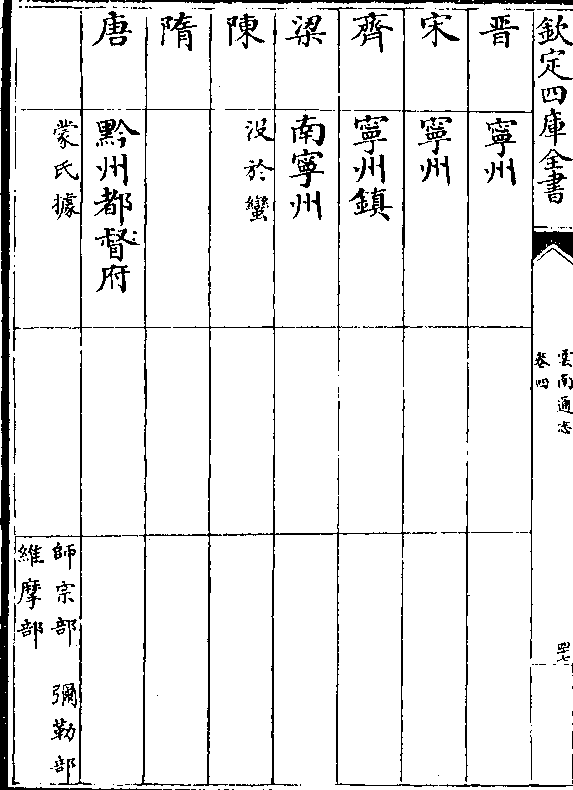 欽定四庫全書
雲南通志
卷四
四七
晋
寧州
宋
寧州
齊
寧州鎮
梁
南寧州
陳
沒於蠻
隋
唐
黔州都督府
蒙氏據
師宗部 彌勒部
維摩部